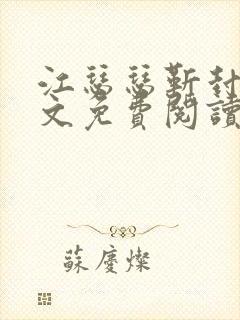 江瑟瑟靳封
文免費閱讀
蘇慶燦